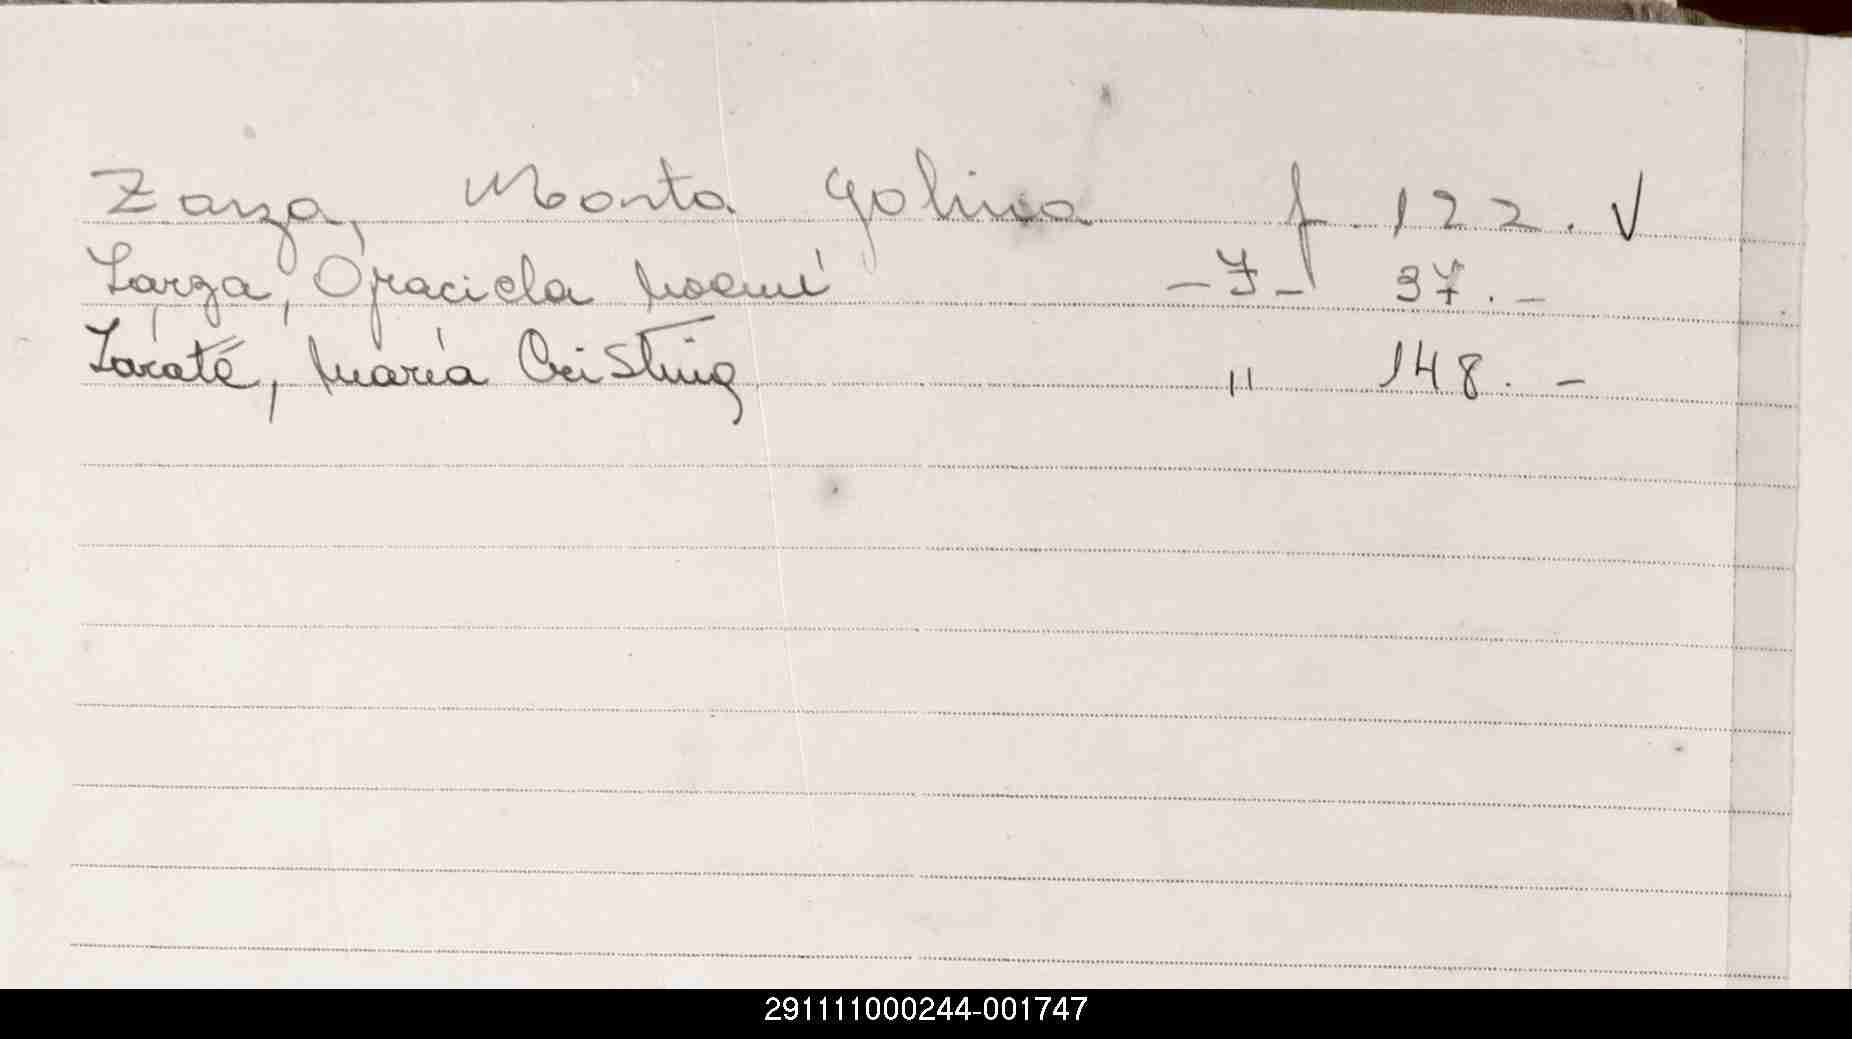 Zarza, Marta Yolina f. 122. V
Zarza, Graciela Noemí - F - 37. -
Zarate, María Cristina " 148. -
291111000244-001747